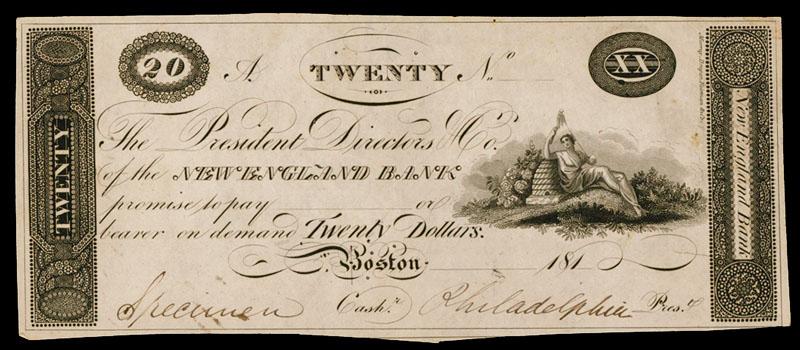 20 A. TWENTY N.º XX
The President Directors & Co.
of the NEW ENGLAND BANK
promise to pay or
bearer on demand Twenty Dollars.
Boston 181
Specimen Cash.r Philadelphia Pres.t
TWENTY
New England Bank